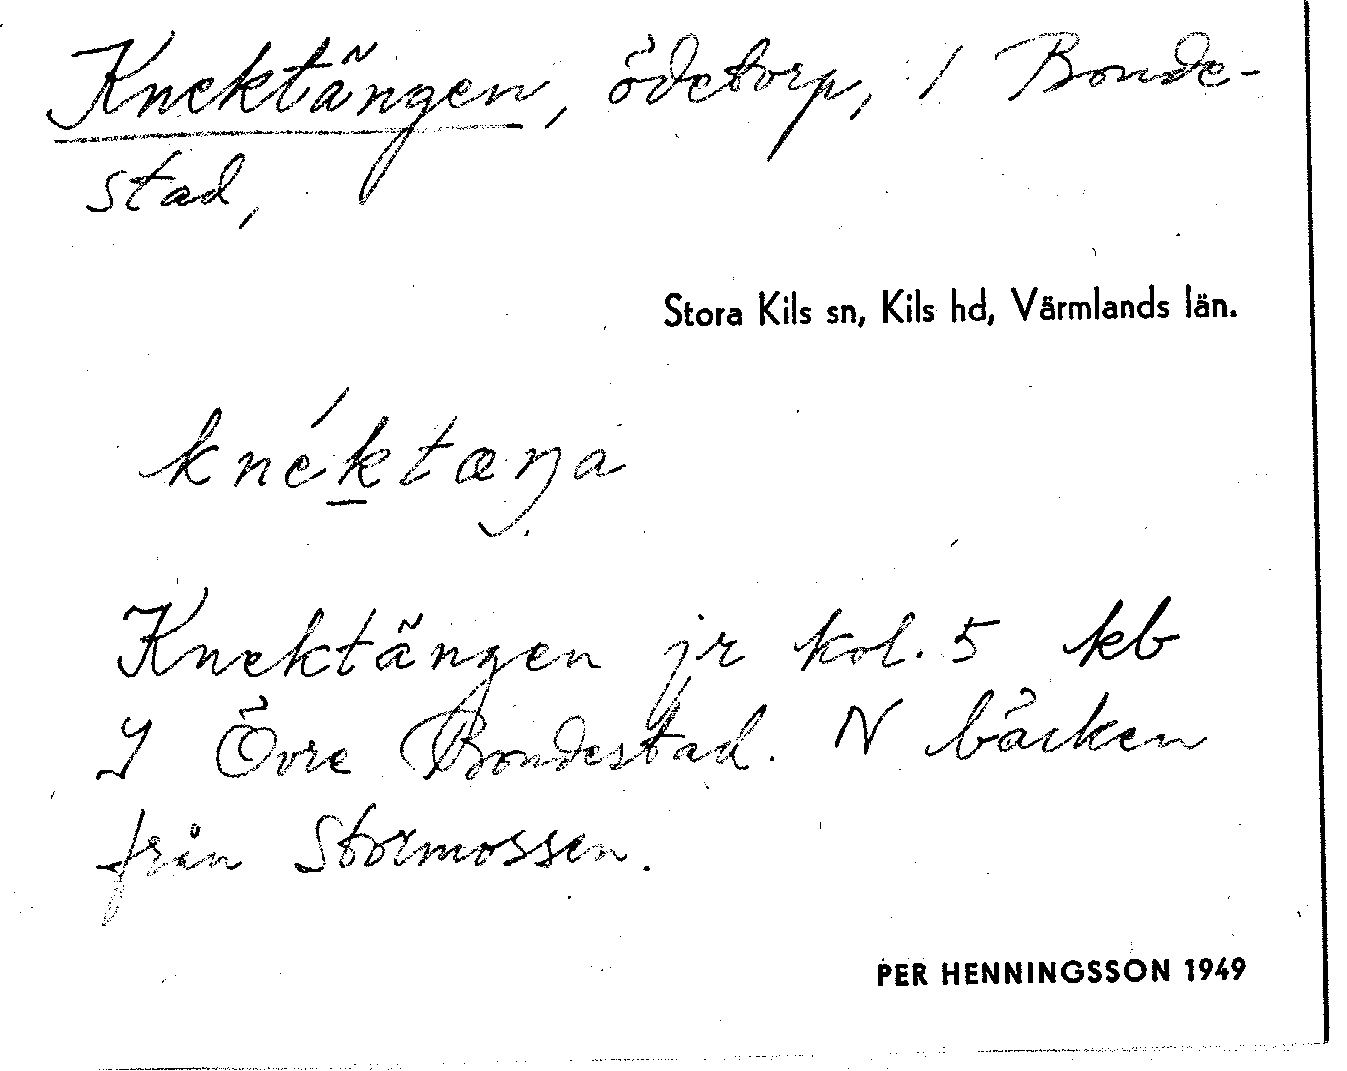 Knektängen, ödetorp, i Bonde-
stad,
Stora Kils sn, Kils hd, Värmlands län.
knéktæŋa
Knektängen jr kol. 5 kb
I Övre Bondestad. N bäcken
från Stormossen.
PER HENNINGSSON 1949